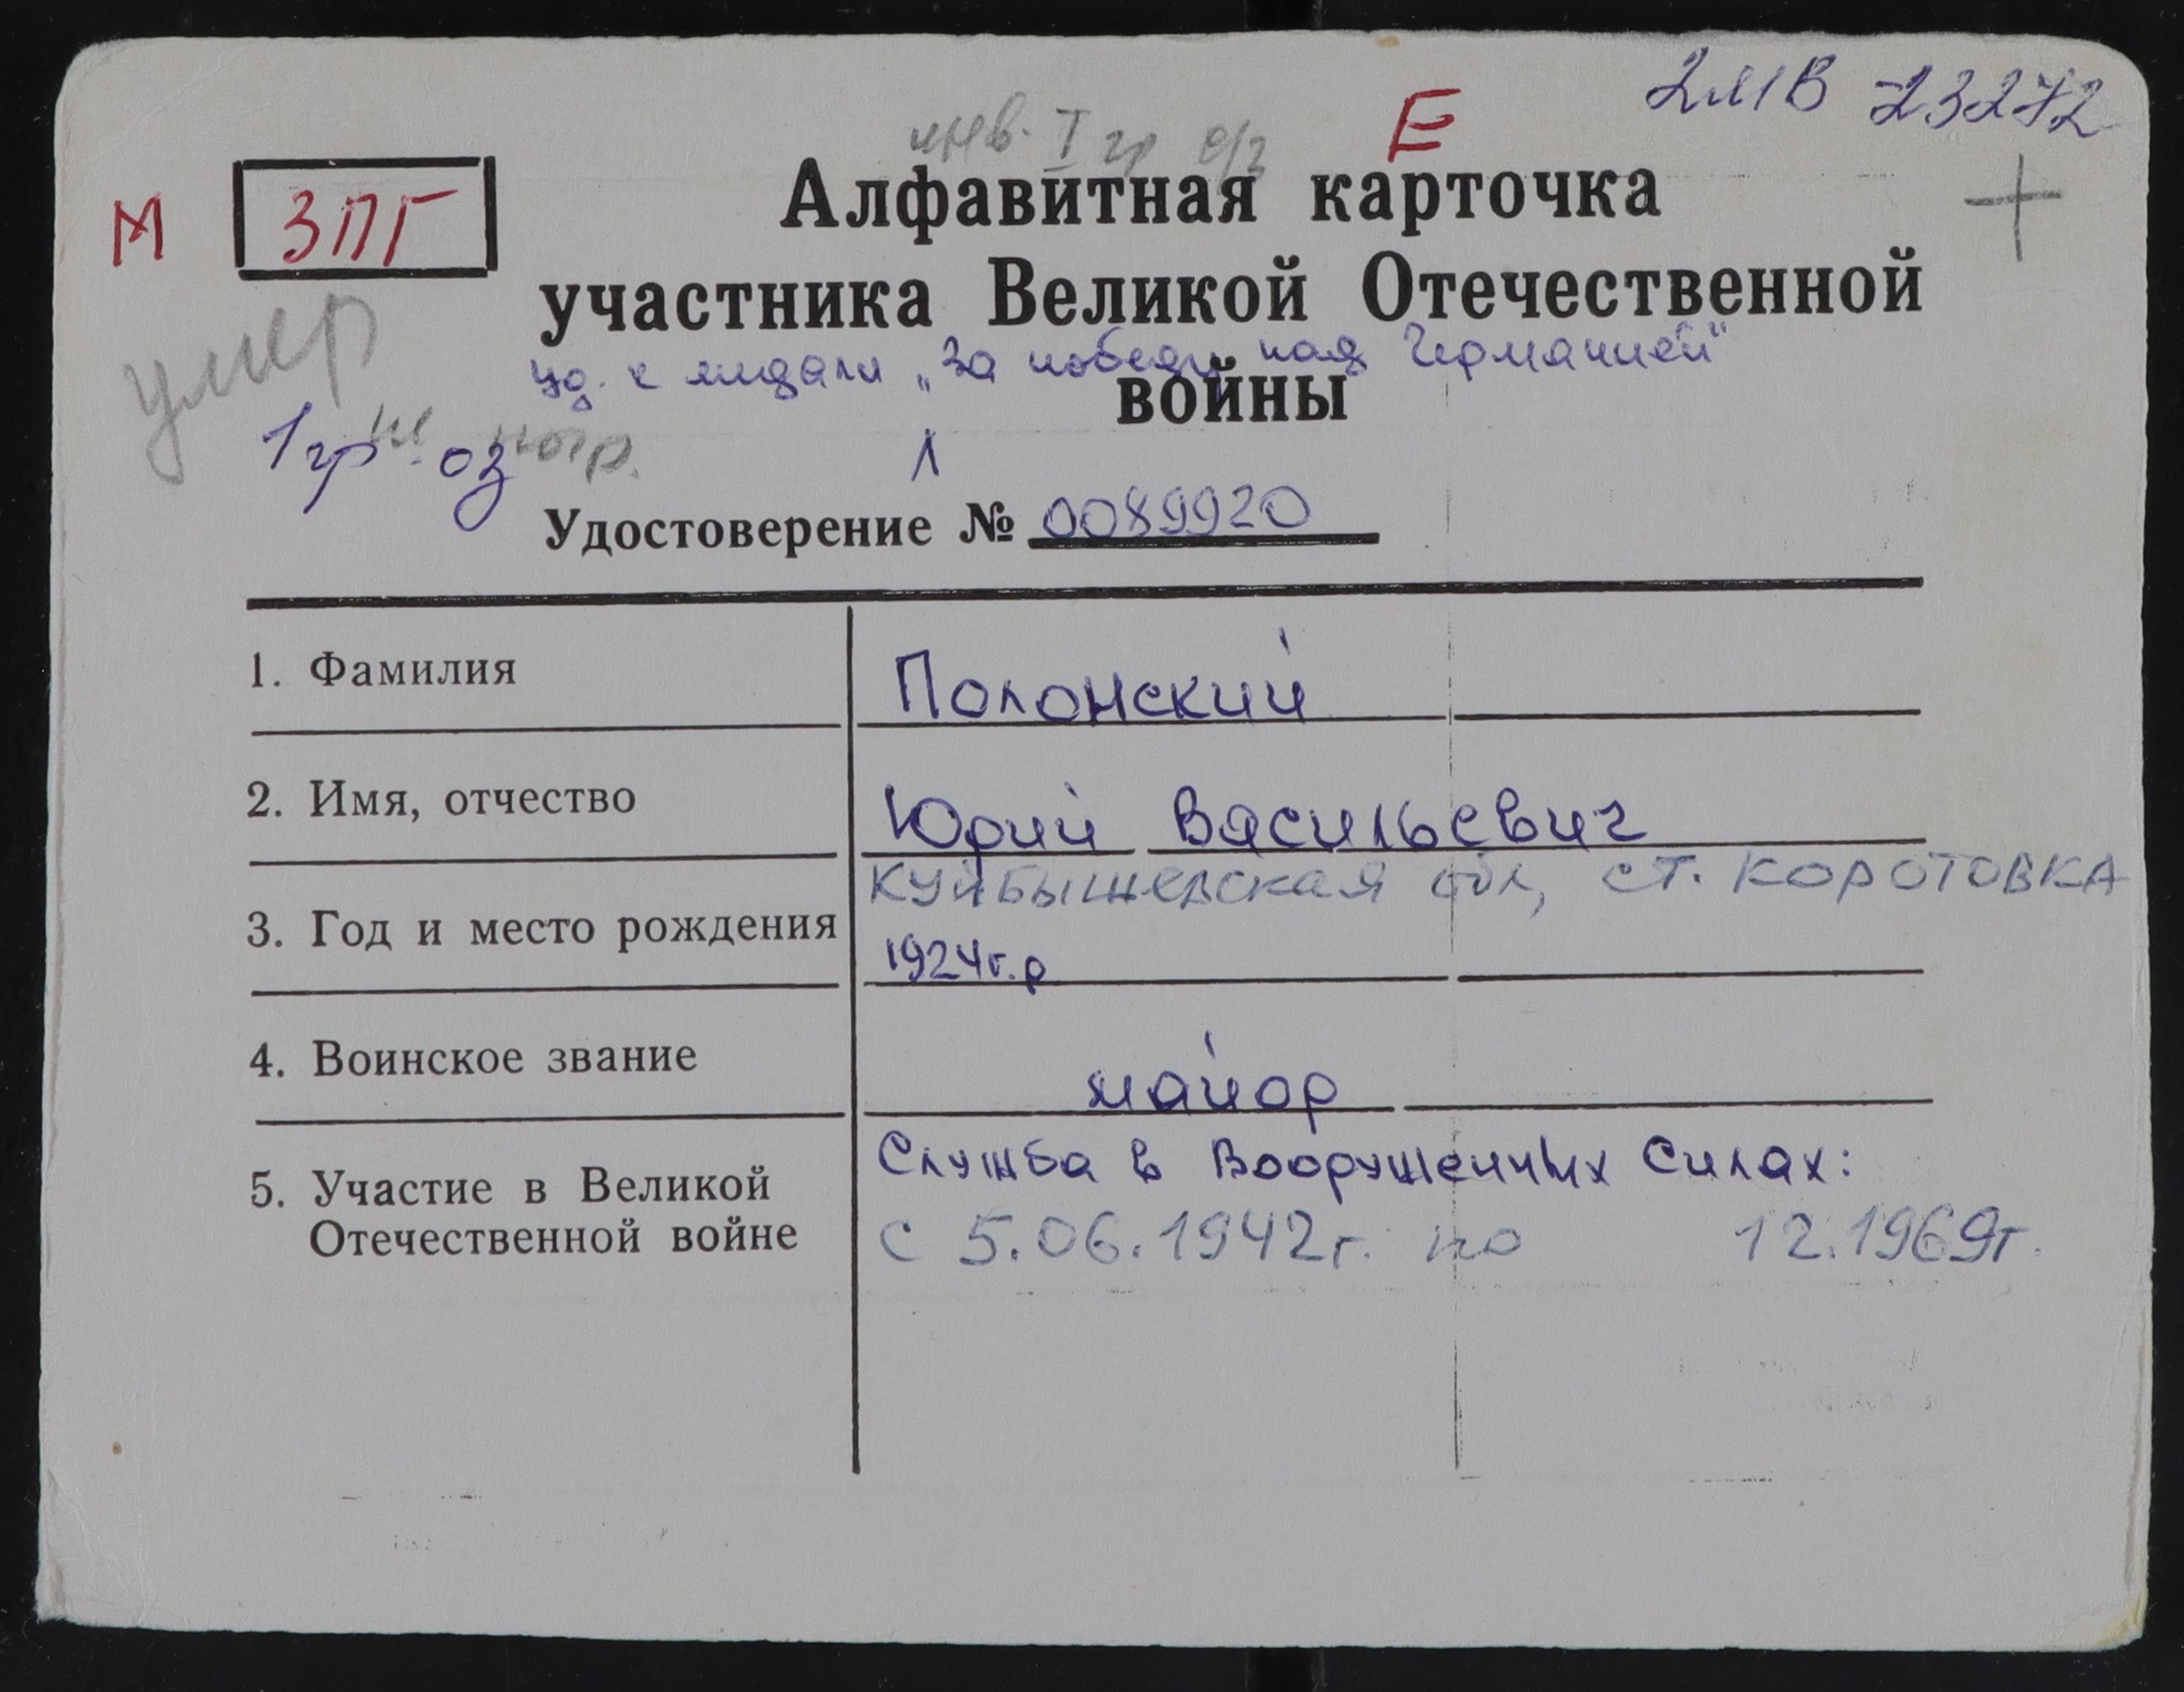 2МВ 23272
инв. I гр о/з Е
М ЗПГ Алфавитная карточка +
участника Великой Отечественной
умер
уд. к медали „За победу над Германией"
войны
1 гр оз
Удостоверение № 0089920
1. Фамилия Полонский
2. Имя, отчество Юрий Васильевич
Куйбышевская обл, ст. КОРОТОВКА
3. Год и место рождения
1924г.р
4. Воинское звание майор
Служба в Вооруженных Силах:
5. Участие в Великой
Отечественной войне с 5.06.1942г. по 12.1969г.